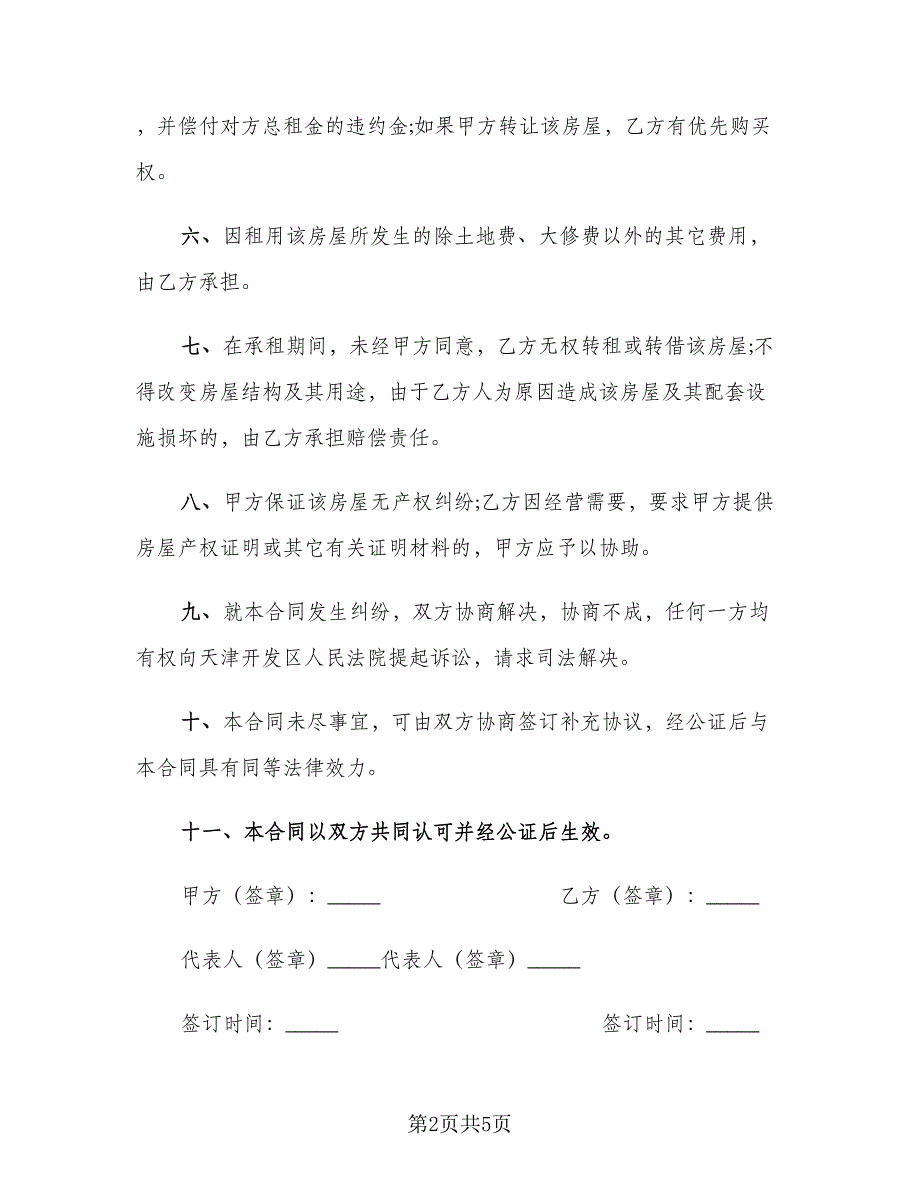 ，并偿付对方总租金的违约金;如果甲方转让该房屋，乙方有优先购买
权。
六、因租用该房屋所发生的除土地费、大修费以外的其它费用，
由乙方承担。
七、在承租期间，未经甲方同意，乙方无权转租或转借该房屋;不
得改变房屋结构及其用途，由于乙方人为原因造成该房屋及其配套设
施损坏的，由乙方承担赔偿责任。
八、甲方保证该房屋无产权纠纷;乙方因经营需要，要求甲方提供
房屋产权证明或其它有关证明材料的，甲方应予以协助。
九、就本合同发生纠纷，双方协商解决，协商不成，任何一方均
有权向天津开发区人民法院提起诉讼，请求司法解决。
十、本合同未尽事宜，可由双方协商签订补充协议，经公证后与
本合同具有同等法律效力。
十一、本合同以双方共同认可并经公证后生效。
甲方（签章）：_____ 乙方（签章）：_____
代表人（签章）_____代表人（签章）_____
签订时间：_____ 签订时间：_____
第2页共5页